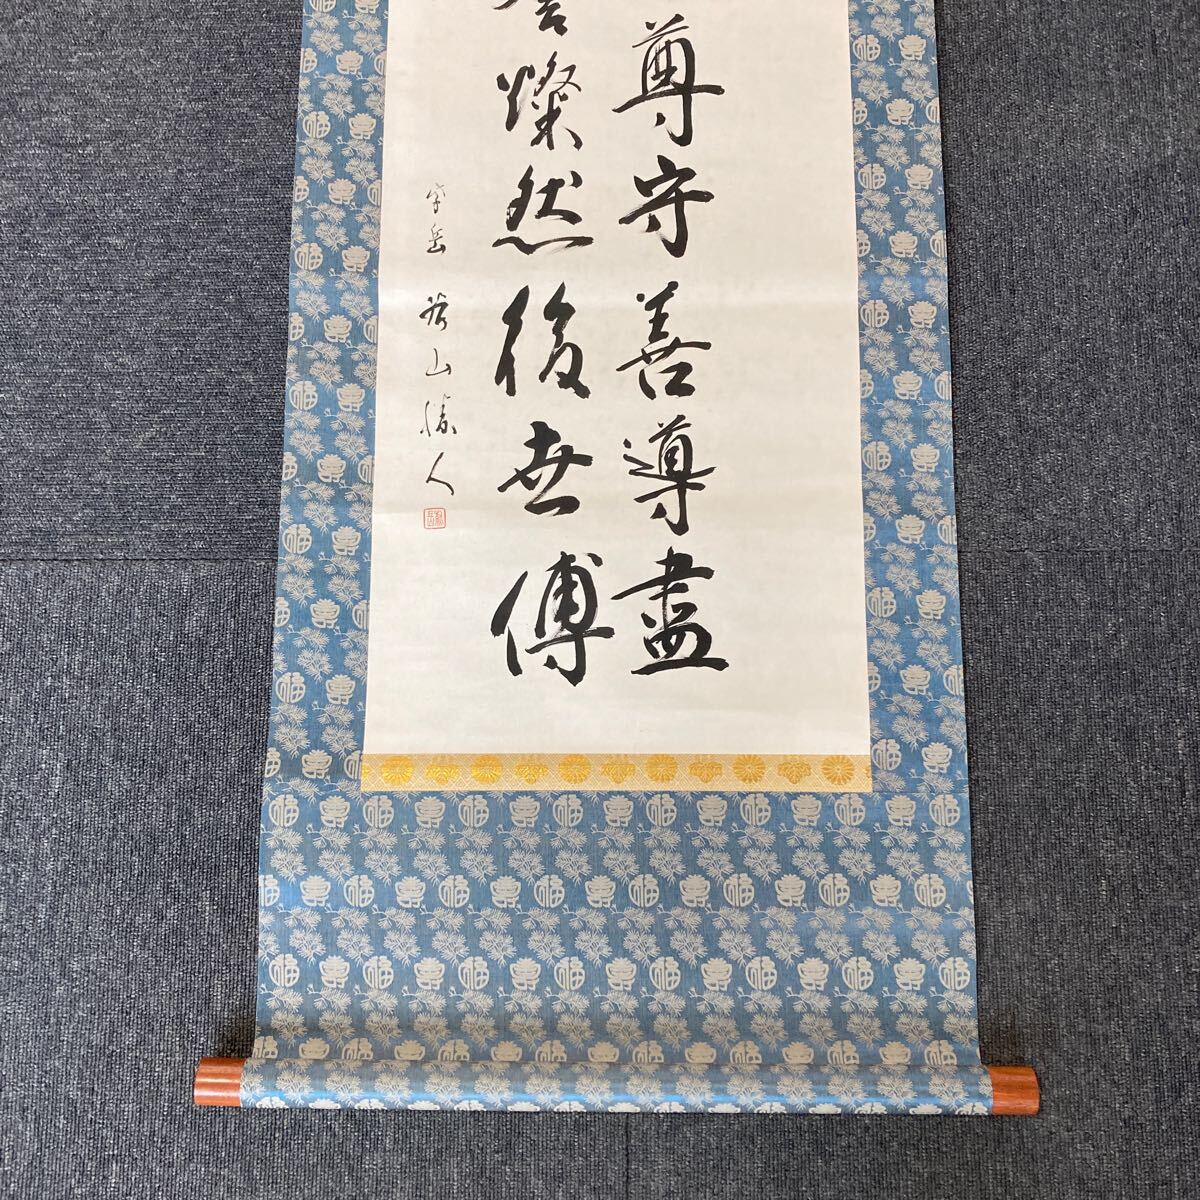 尊守善導盡
燦然後世傳
岳 山勝人